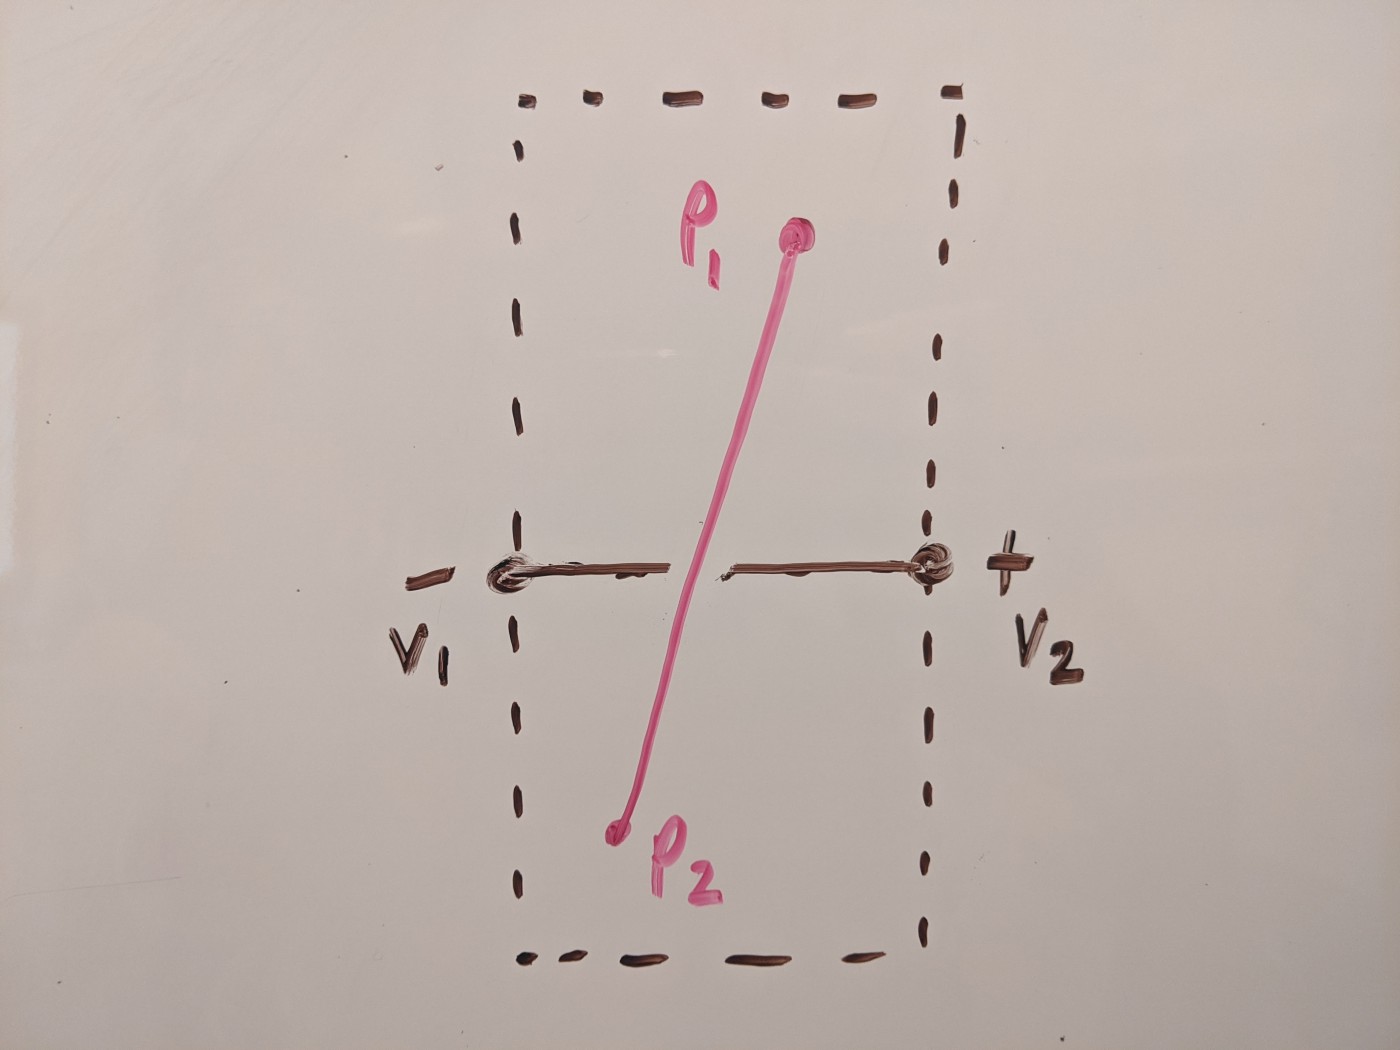 P1
- +
V1 V2
P2